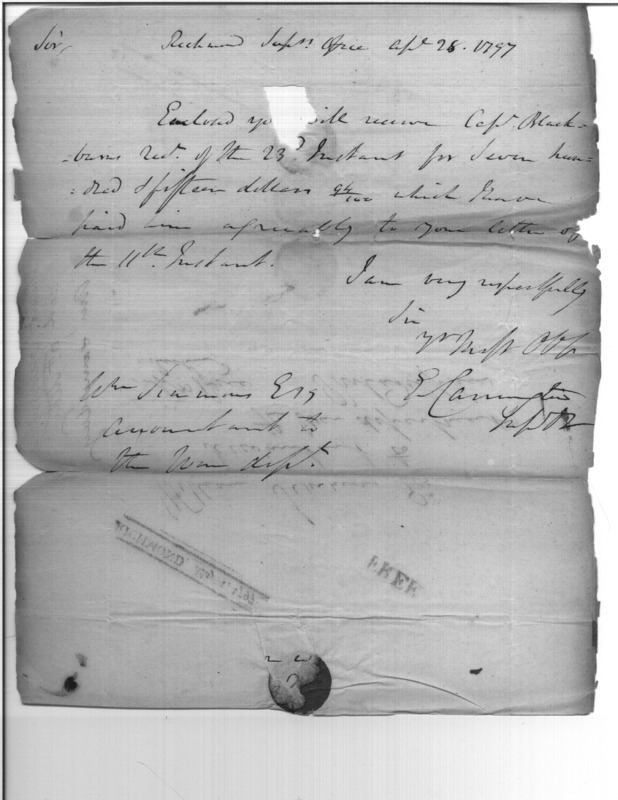 Sir, Richmond Supr. Office Apl. 28. 1797
Enclosed you will receive Capt. Black-
-burns rect. of the 23d. Instant for Seven hun-
-dred & fifteen dollars which I have
paid him agreeably to your letter of
the 11th. Instant.
I am very respectfully
Sir
yr
E Carrington
Wm Simmons Esq
accountant to
the War dept.
RICHMOND, 1797
FREE